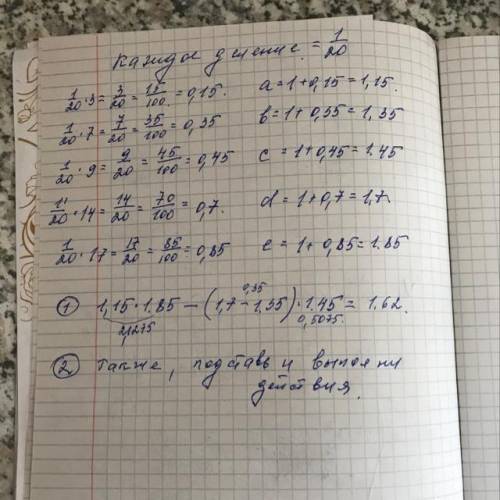 каждое деление = 1/20
1/20 · 3 = 3/20 = 15/100 = 0,15. a = 1 + 0,15 = 1,15.
1/20 · 7 = 7/20 = 35/100 = 0,35 b = 1 + 0,35 = 1,35
1/20 · 9 = 9/20 = 45/100 = 0,45 c = 1 + 0,45 = 1.45
1/20 · 14 = 14/20 = 70/100 = 0,7. d = 1 + 0,7 = 1,7.
1/20 · 17 = 17/20 = 85/100 = 0,85 e = 1 + 0,85 = 1.85
0,35
① 1,15 · 1.85 — (1,7 - 1.35) · 1.45 = 1.62.
2,1275 0,5075.
② также, подставь и выполни
действия.